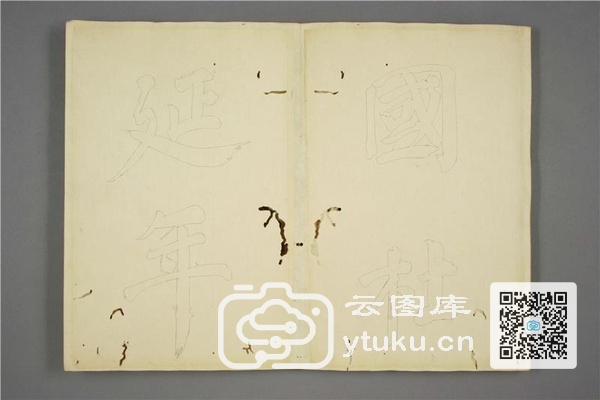 國杜
延年
云图库
ytuku.cn